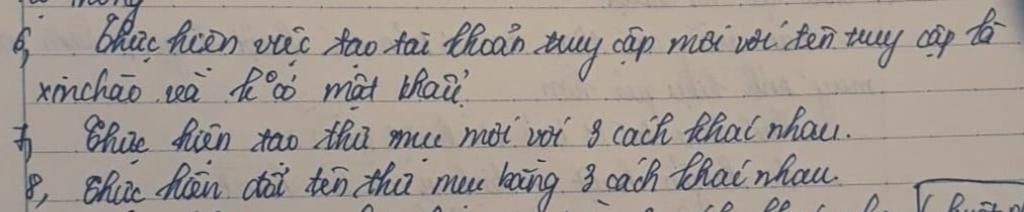 6, Thực hiện việc tạo tài khoản truy cập mới với tên truy cập là
xinchào và k° có mật khẩu.
7, Thực hiện tạo thư mục mới với 3 cách khác nhau.
8, Thực hiện đổi tên thư mục bằng 3 cách khác nhau.